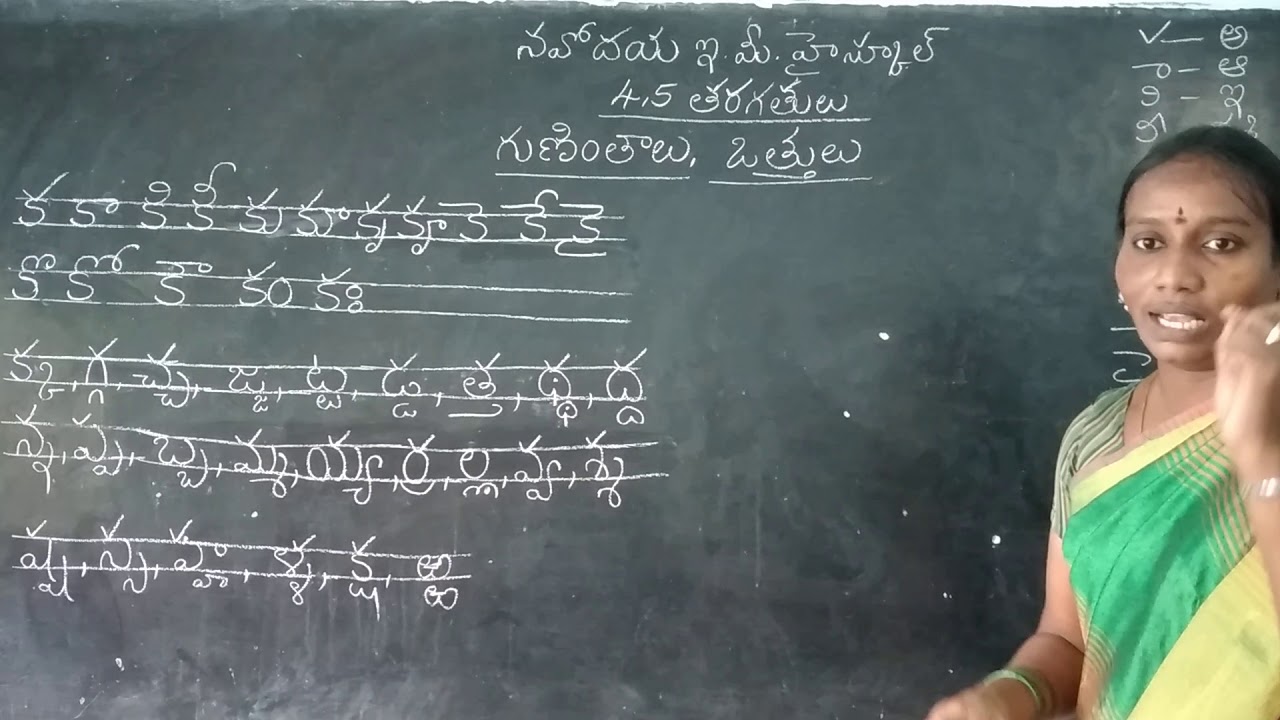 నవోదయ ఇ.మీ. హైస్కూల్
4,5 తరగతులు
గుణింతాలు, ఒత్తులు
క కా కి కీ కు కూ కృ కౄ కె కే కై
కొ కో కౌ కం కః
క్క, గ్గ, చ్చ, జ్జ, ట్ట, డ్డ, త్త, థ్థ, ద్ద
న్న, ప్ప, బ్బ, మ్మ, య్య, ర్ర, ల్ల, వ్వ, శ్శ
ష్ష, స్స, హ్హ, ళ్ళ, క్ష,
✓ — అ
ా — ఆ
ి — ఇ
ీ